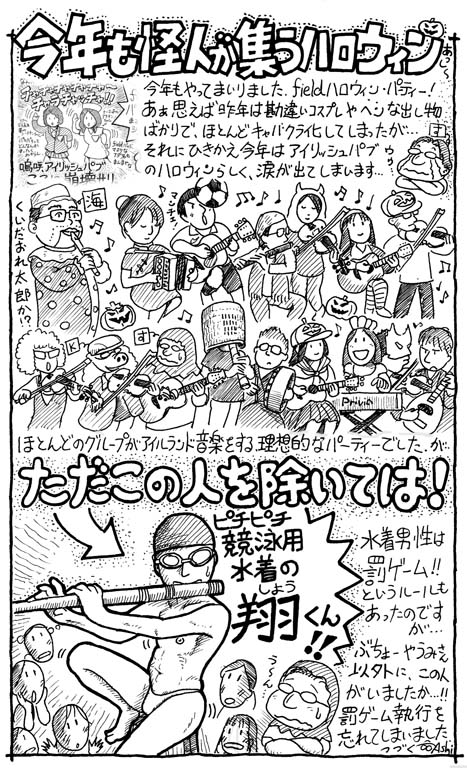 今年も怪人が集うハロウィン
あ〜
今年もやってまいりました、fieldハロウィン・パーティー!
あぁ思えば昨年は勘違いコスプレやヘンな出し物
ばかりで、ほとんどキャバクラ化してしまったが…
それにひきかえ今年はアイリッシュパブ
のハロウィンらしく、涙が出てしまいます…
ウゥ
す
嗚呼、アイリッシュパブ
海
くいだおれ太郎か?
K
す
ほとんどのグループがアイルランド音楽をする理想的なパーティーでした、が…
ただこの人を除いては!
ピチピチ
競泳用
水着の
しょう
翔くん
!!
水着男性は
罰ゲーム!!
というルールも
あったのです
が…
ぶちょーやうみさん
以外に、この人
がいましたか…!!
罰ゲーム執行を
忘れてしまいました
つづく
う〜ん